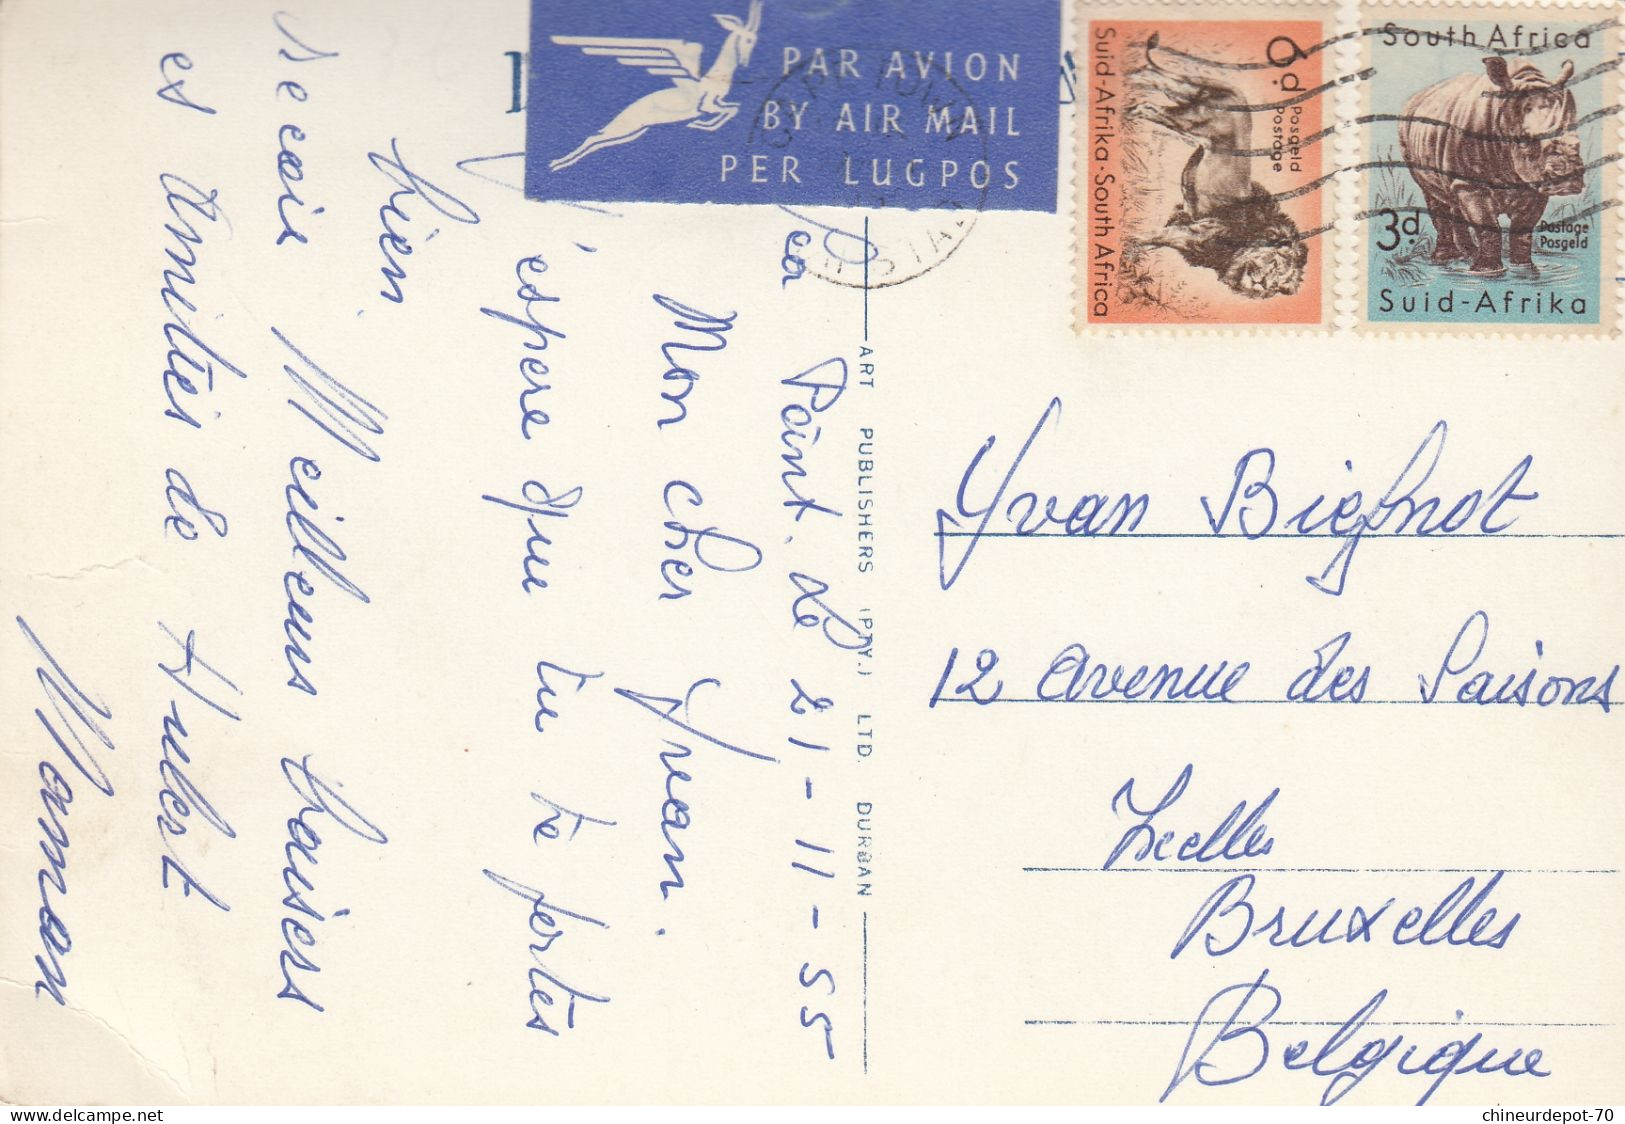 PAR AVION
BY AIR MAIL
PER LUGPOS
6d.
Posgeld
Postage
Suid-Afrika · South Africa
South Africa
3d.
Postage
Posgeld
Suid-Afrika
Point. Le 21-11-55
Mon cher Yvan.
J'espere que tu te portes
bien.
Meilleurs baisers
es Amitiés de Hulst
Maman
ART PUBLISHERS (PTY.) LTD. DURBAN
Yvan Biefnot
12 avenue des Saisons
Ixelles
Bruxelles
Belgique
chineurdepot-70